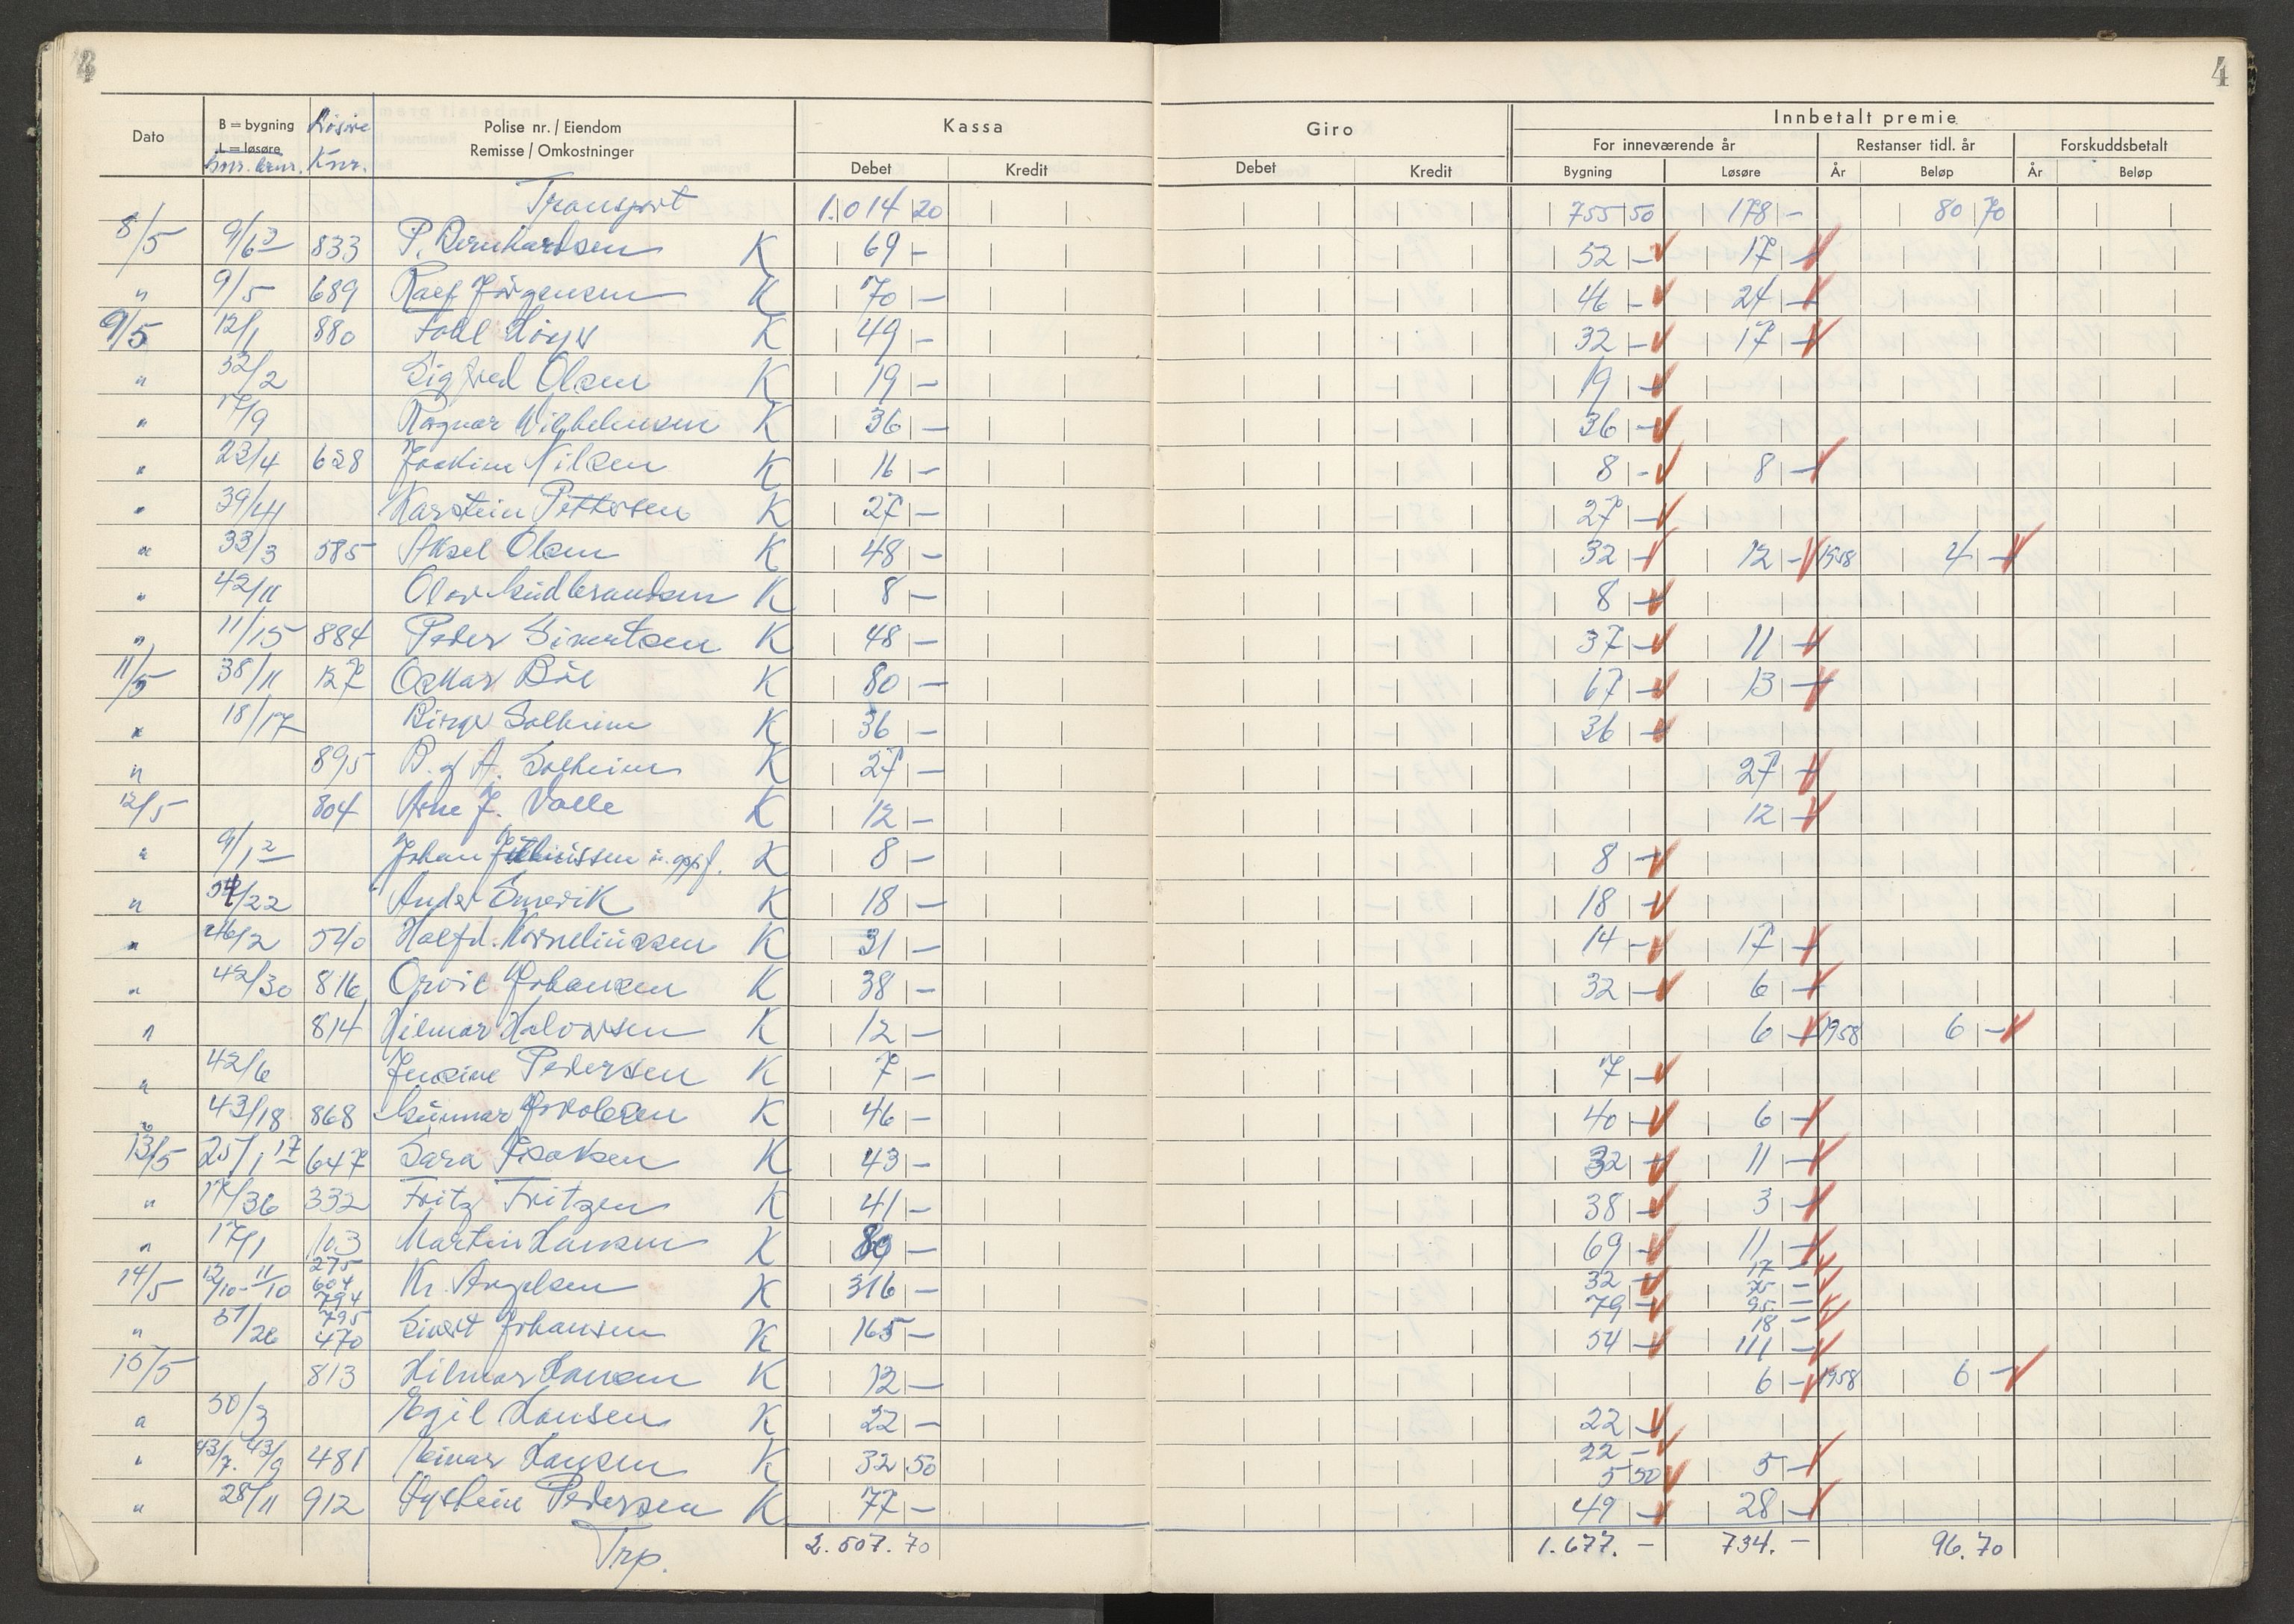 4
Dato B = bygning L = løsøre Løsøre Polise nr. / Eiendom Remisse / Omkostninger Kassa Debet Kredit Giro Debet Kredit Innbetalt premie For inneværende år Bygning Løsøre Restanser tidl. år År Beløp Forskuddsbetalt År Beløp
gnr. brnr. Knr.
Transport 1.014 20 755 50 178 - 80 70
8/5 9/63 833 P. Bernhardsen K 69 - 52 - 17 -
" 9/5 689 Jørgensen K 70 - 46 - 24 -
9/5 12/1 880 K 49 - 32 - 17 -
" 52/2 Sigfred Olsen K 19 - 19 -
" 17/9 Ragnar Vilhelmsen K 36 - 36 -
" 23/4 628 Joakim Nilsen K 16 - 8 - 8 -
" 39/41 Karstein Pettersen K 27 - 27 -
" 33/3 585 Aksel Olsen K 48 - 32 - 12 - 1958 4 -
" 42/11 Olav Gudbrandsen K 8 - 8 -
" 11/15 884 Peder Sivertsen K 48 - 37 - 11 -
11/5 38/11 127 Oskar Bøe K 80 - 67 - 13 -
" 18/17 Birger Solheim K 36 - 36 -
" 895 B. og A. Solheim K 27 - 27 -
12/5 804 Arne J. Valle K 12 - 12 -
" 9/12 Johan K 8 - 8 -
" 54/22 Smevik K 18 - 18 -
" 46/2 540 Halfd. Korneliussen K 31 - 14 - 17 -
" 42/30 816 Johansen K 38 - 32 - 6 -
" 814 Hilmar Halvorsen K 12 - 6 - 1958 6 -
" 42/6 Jensine Pedersen K 7 - 7 -
" 43/18 868 Gunnar Jakobsen K 46 - 40 - 6 -
13/5 25/1 17 647 Sara Isaksen K 43 - 32 - 11 -
" 17/36 332 Fritz Fritzen K 41 - 38 - 3 -
" 17/1 103 Martin Hansen K 80 - 69 - 11 -
14/5 12/10 - 11/10 275 604 794 795 Kr. Angelsen K 316 - 32 - 79 - 17 - 75 - 95 - 18 -
" 37/26 470 Sivert Johansen K 165 - 54 - 111 -
15/5 813 Hilmar Hansen K 12 - 6 - 1958 6 -
" 50/3 Egil Hansen K 22 - 22 -
" 43/7. 43/9 481 Einar Hansen K 32 50 22 - 5 50 5 -
" 28/11 912 Øystein Pedersen K 77 - 49 - 28 -
Trp. 2.507.70 1.677. - 734. - 96.70